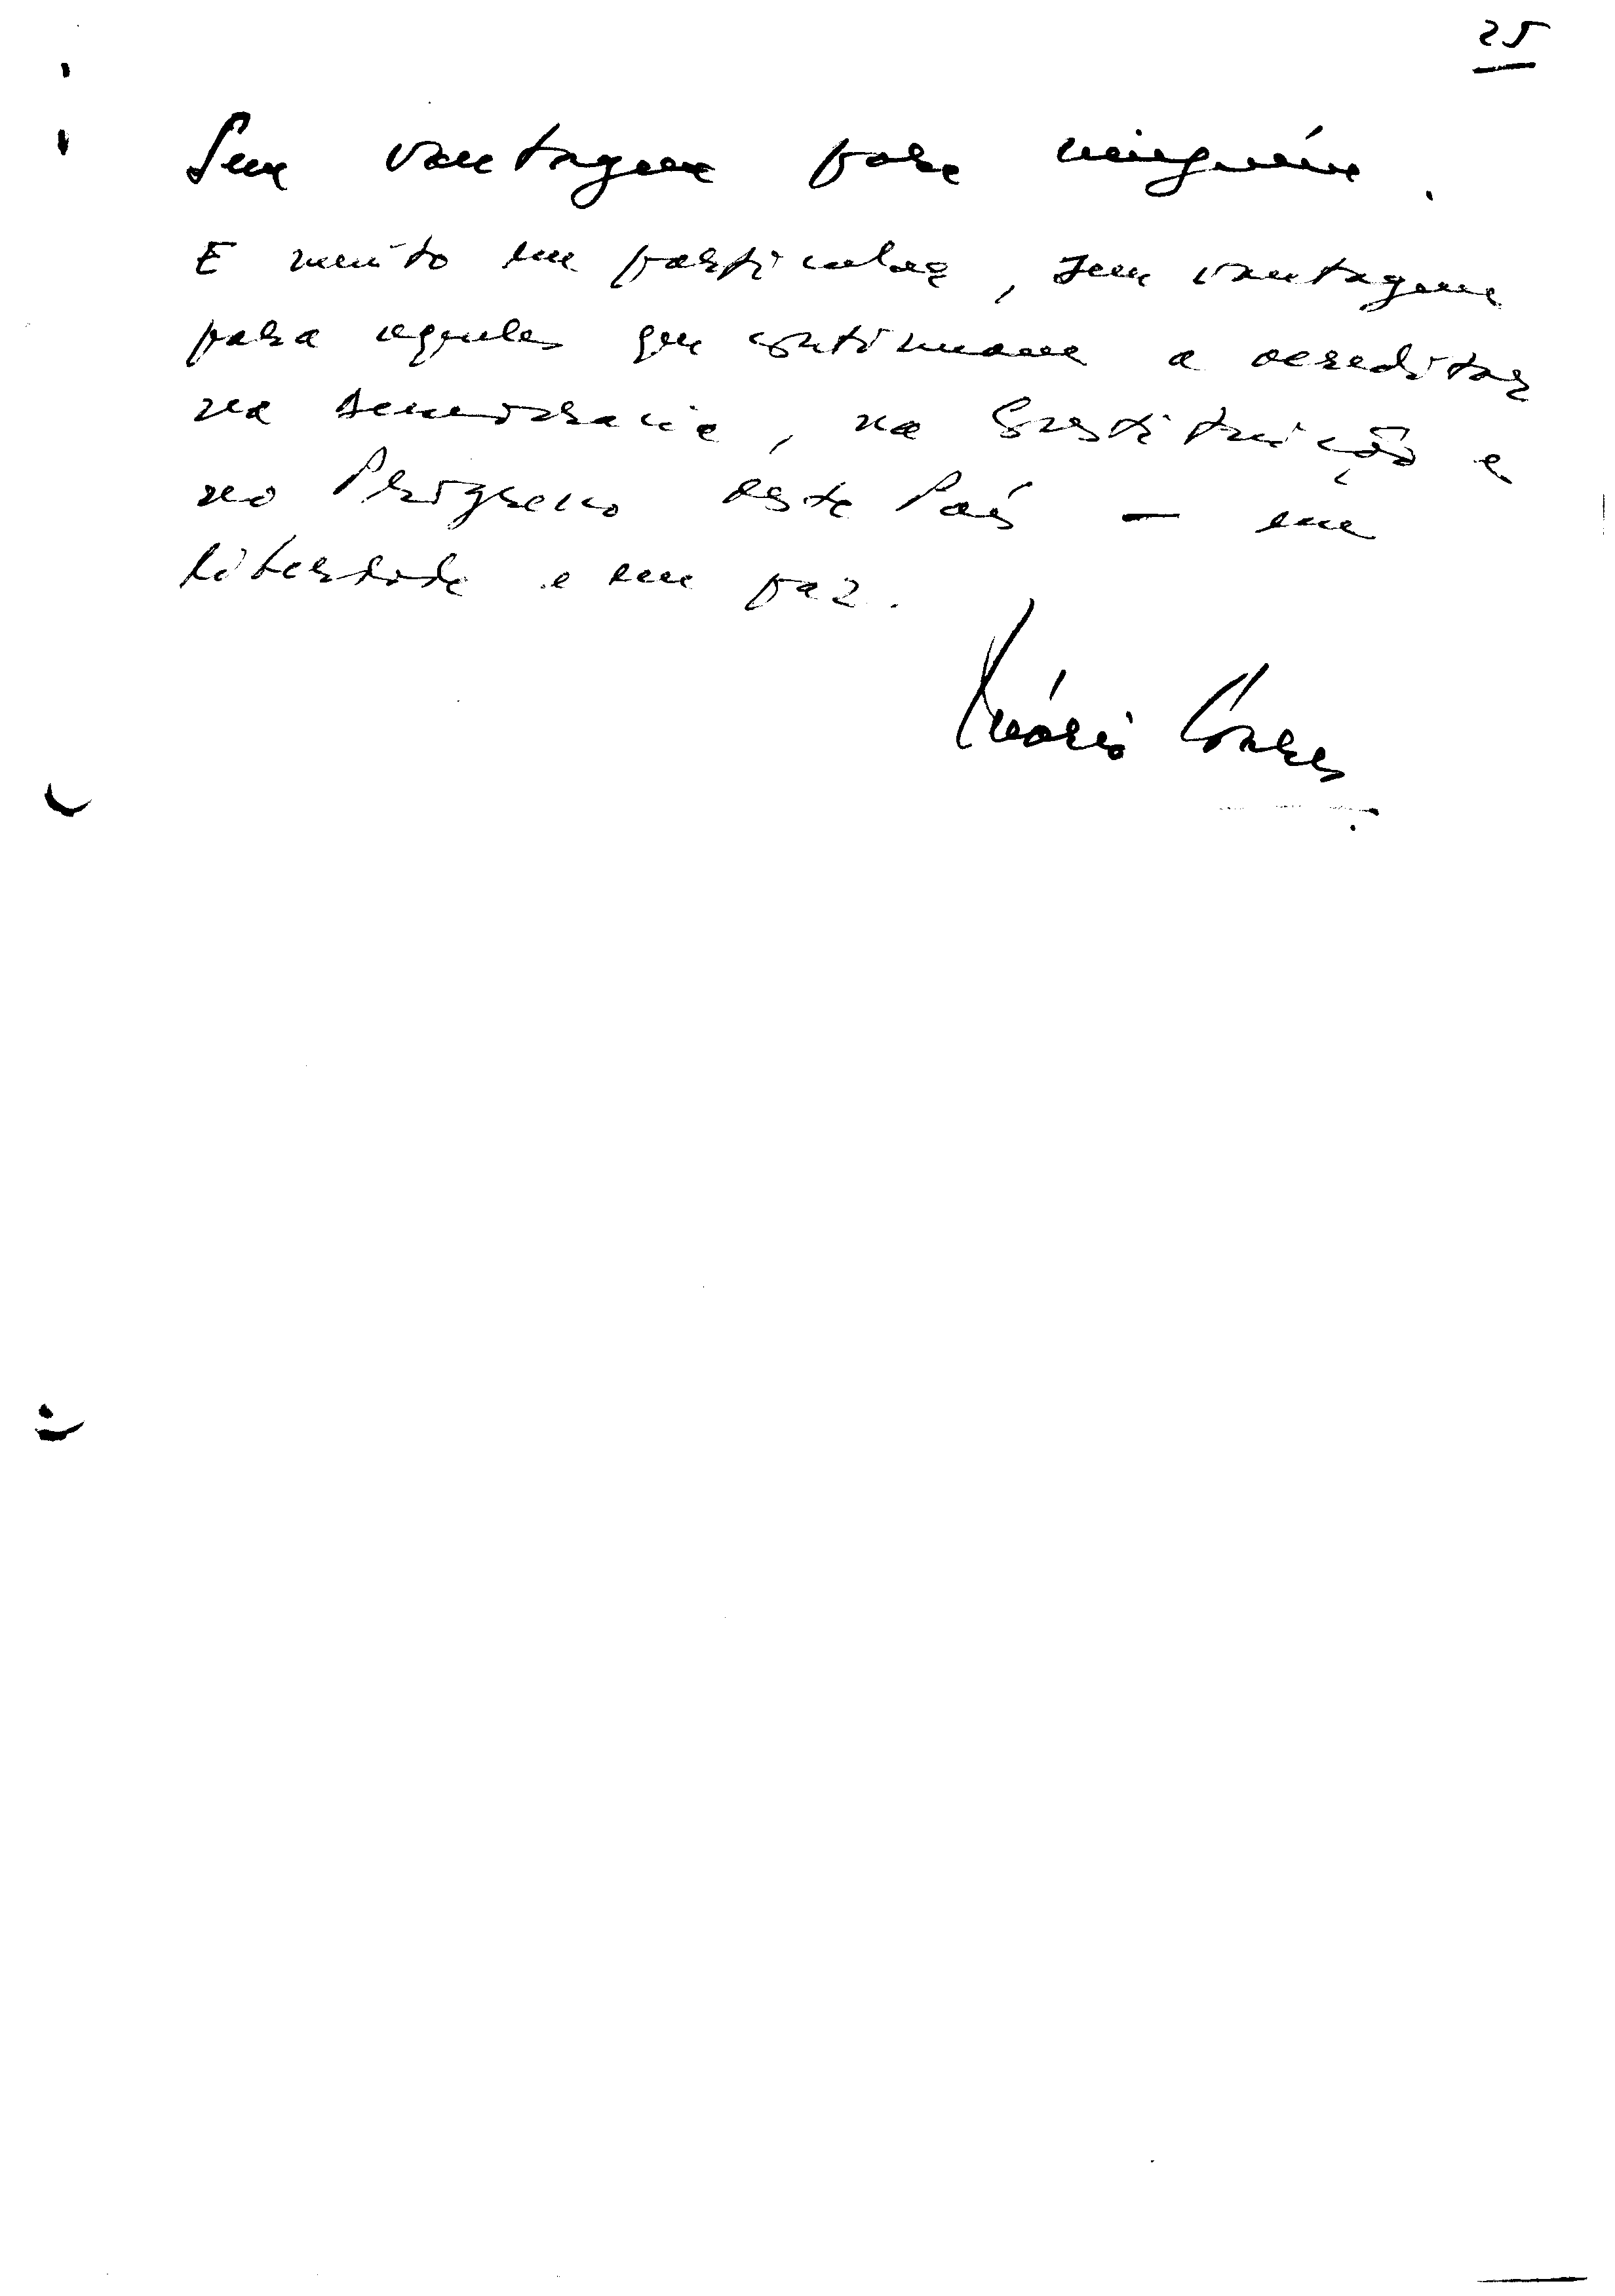 25
Sem vantagem para ninguém.
E muito em particular, sem vantagem
para aqueles que continuam a acreditar
na democracia, na Constituição e
no Progresso deste País — em
liberdade e em paz.
Mário